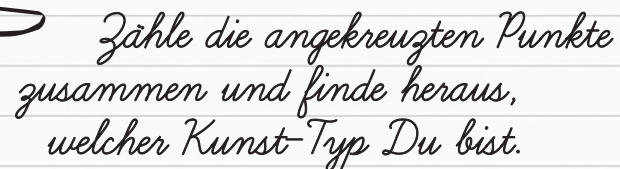 Zähle die angekreuzten Punkte
zusammen und finde heraus,
welcher Kunst-Typ Du bist.